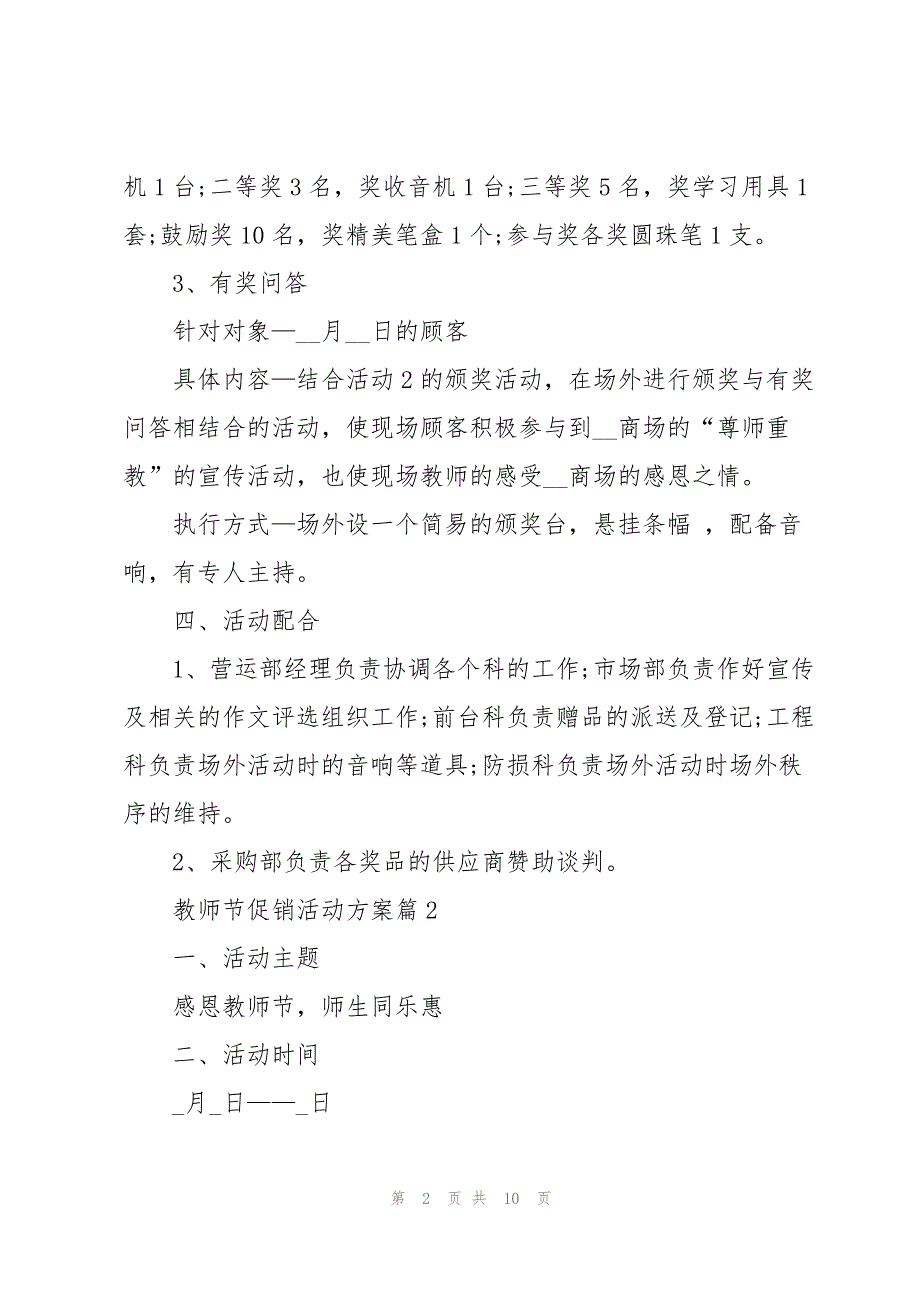 机1台;二等奖3名，奖收音机1台;三等奖5名，奖学习用具1
套;鼓励奖10名，奖精美笔盒1个;参与奖各奖圆珠笔1支。
3、有奖问答
针对对象—__月__日的顾客
具体内容—结合活动2的颁奖活动，在场外进行颁奖与有奖
问答相结合的活动，使现场顾客积极参与到__商场的“尊师重
教”的宣传活动，也使现场教师的感受__商场的感恩之情。
执行方式—场外设一个简易的颁奖台，悬挂条幅 ，配备音
响，有专人主持。
四、活动配合
1、营运部经理负责协调各个科的工作;市场部负责作好宣传
及相关的作文评选组织工作;前台科负责赠品的派送及登记;工程
科负责场外活动时的音响等道具;防损科负责场外活动时场外秩
序的维持。
2、采购部负责各奖品的供应商赞助谈判。
教师节促销活动方案篇2
一、活动主题
感恩教师节，师生同乐惠
二、活动时间
_月_日——_日
第 2 页 共 10 页